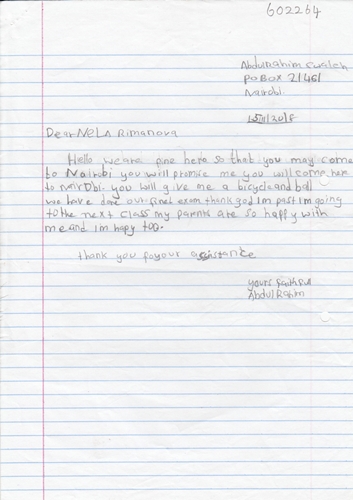 602264
Abdulrahim Swaleh
PO BOX 21461
Nairobi.
Dear NELA Rimanova
Hello we are fine here so that you may come
to Nairobi you will promise me you will come here
to nairobi. you will give me a bicycle and ball
we have done our final exam thank god Im past Im going
to the next class my parents are so happy with
me and im hapy too.
thank you foyour assistance
yours faithfull
Abdul Rahim